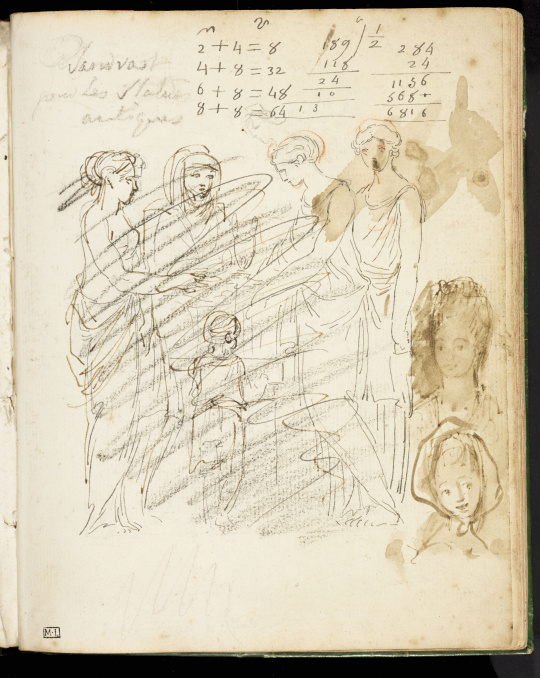 Sandrart
pour Les Statues
antiques
n v
2 + 4 = 8
4 + 8 = 32
6 + 8 = 48
8 + 8 = 64
189
1
2
24
13
284
24
1136
568
6816
M.L.